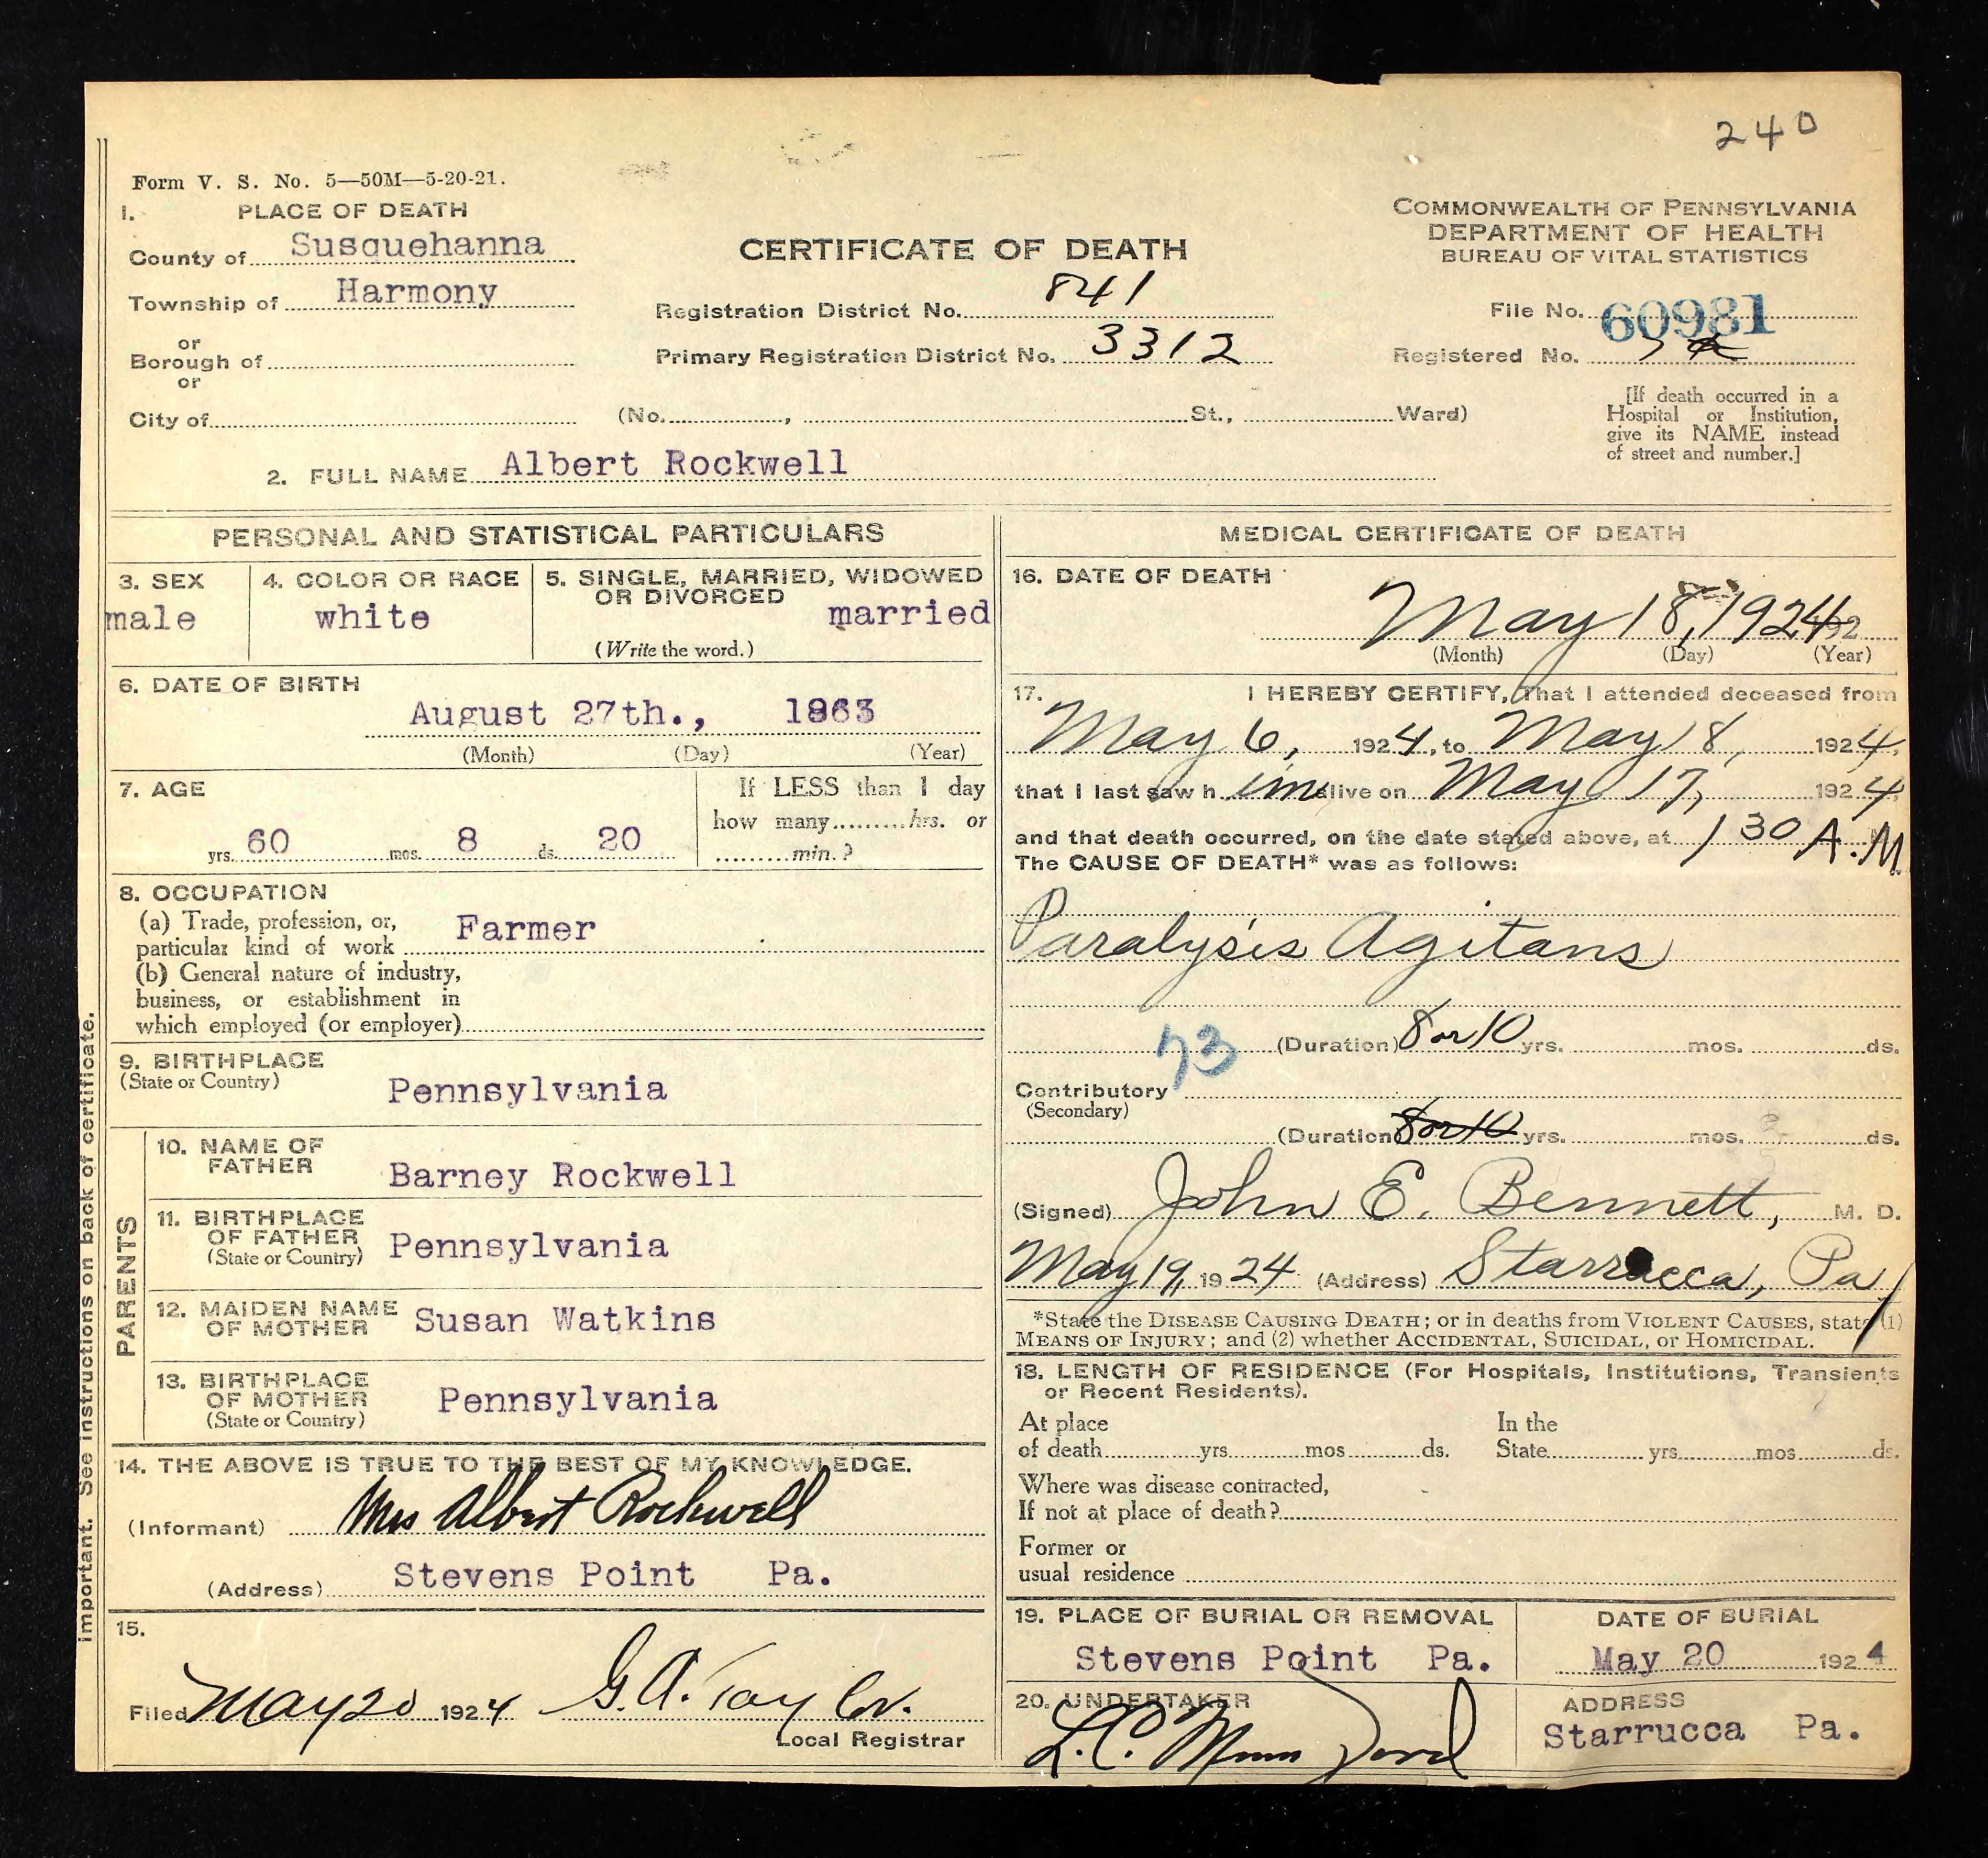 240
Form V. S. No. 5—50M—5-20-21.
1. PLACE OF DEATH
County of Susquehanna
Township of Harmony
or
Borough of
or
City of
CERTIFICATE OF DEATH
Registration District No. 841
Primary Registration District No. 3312
(No. , St., Ward)
COMMONWEALTH OF PENNSYLVANIA
DEPARTMENT OF HEALTH
BUREAU OF VITAL STATISTICS
File No. 60981
Registered No.
[If death occurred in a
Hospital or Institution,
give its NAME instead
of street and number.]
2. FULL NAME Albert Rockwell
PERSONAL AND STATISTICAL PARTICULARS
3. SEX
male
4. COLOR OR RACE
white
5. SINGLE, MARRIED, WIDOWED
OR DIVORCED
married
(Write the word.)
6. DATE OF BIRTH
August 27th., 1863
(Month) (Day) (Year)
7. AGE
60 yrs. 8 mos. 20 ds.
If LESS than 1 day
how many hrs. or
min.?
8. OCCUPATION
(a) Trade, profession, or,
particular kind of work Farmer
(b) General nature of industry,
business, or establishment in
which employed (or employer)
9. BIRTHPLACE
(State or Country)
Pennsylvania
PARENTS
10. NAME OF
FATHER
Barney Rockwell
11. BIRTHPLACE
OF FATHER
(State or Country)
Pennsylvania
12. MAIDEN NAME
OF MOTHER
Susan Watkins
13. BIRTHPLACE
OF MOTHER
(State or Country)
Pennsylvania
14. THE ABOVE IS TRUE TO THE BEST OF MY KNOWLEDGE.
(Informant) Mrs Albert Rockwell
(Address) Stevens Point Pa.
15.
Filed May 20 1924 G.A. Taylor.
Local Registrar
important. See instructions on back of certificate.
MEDICAL CERTIFICATE OF DEATH
16. DATE OF DEATH
May 18, 1924 192
(Month) (Day) (Year)
17. I HEREBY CERTIFY, That I attended deceased from
May 6, 1924, to May 18, 1924,
that I last saw h im alive on May 17, 1924,
and that death occurred, on the date stated above, at 1 30 A.M.
The CAUSE OF DEATH* was as follows:
Paralysis Agitans
73 (Duration) 8 or 10 yrs. mos. ds.
Contributory
(Secondary)
(Duration) 8 or 10 yrs. mos. ds.
(Signed) John E. Bennett, M. D.
May 19, 1924 (Address) Starrucca, Pa
*State the DISEASE CAUSING DEATH; or in deaths from VIOLENT CAUSES, state (1)
MEANS OF INJURY; and (2) whether ACCIDENTAL, SUICIDAL, or HOMICIDAL.
18. LENGTH OF RESIDENCE (For Hospitals, Institutions, Transients
or Recent Residents).
At place
of death yrs. mos. ds.
In the
State yrs. mos. ds.
Where was disease contracted,
If not at place of death?
Former or
usual residence
19. PLACE OF BURIAL OR REMOVAL
Stevens Point Pa.
DATE OF BURIAL
May 20 1924
20. UNDERTAKER
L.C.
ADDRESS
Starrucca Pa.